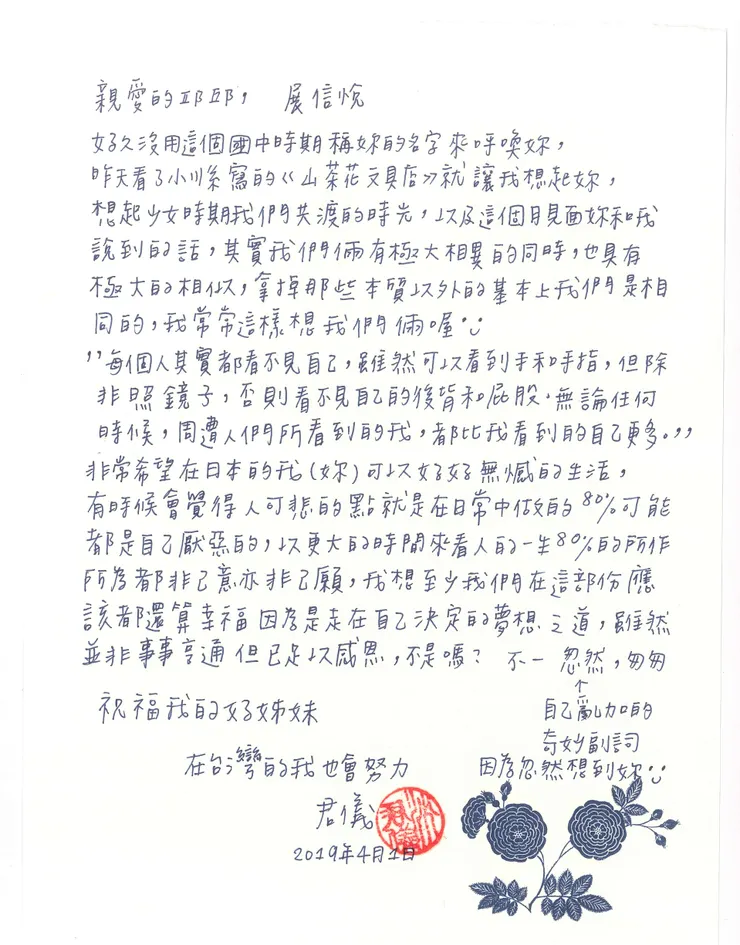 親愛的邱邱， 展信悅
好久沒用這個國中時期稱妳的名字來呼喚妳，
昨天看了小川糸寫的《山茶花文具店》就讓我想起妳，
想起少女時期我們共渡的時光，以及這個月見面妳和我
說到的話，其實我們倆有極大相異的同時，也具有
極大的相似，拿掉那些本質以外的基本上我們是相
同的，我常常這樣想我們倆喔
"每個人其實都看不見自己，雖然可以看到手和手指，但除
非照鏡子，否則看不見自己的後背和屁股。無論任何
時候，周遭人們所看到的我，都比我看到的自己更多。"
非常希望在日本的我(妳)可以好好無憾的生活，
有時候會覺得人可悲的點就是在日常中做的80%可能
都是自己厭惡的，以更大的時間來看人的一生80%的所作
所為都非己意亦非己願，我想至少我們在這部份應
該都還算幸福因為是走在自己決定的夢想之道，雖然
並非事事亨通但已足以感恩，不是嗎？ 不一 忽然，匆匆
↑
自己亂加的
奇妙副詞
因為忽然想到妳
祝福我的好姊妹
在台灣的我也會努力
君儀
2019年4月1日